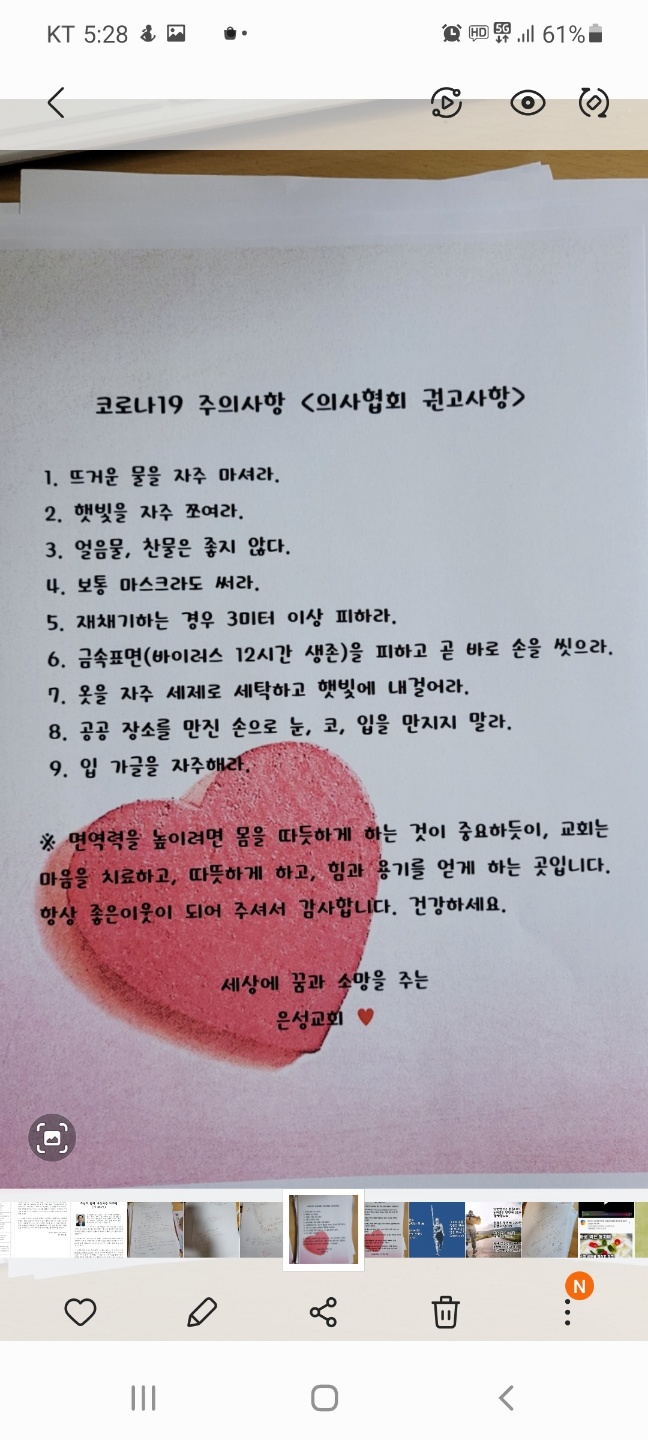 KT 5:28
HD 5G 61%
코로나19 주의사항 <의사협회 권고사항>
1. 뜨거운 물을 자주 마셔라.
2. 햇빛을 자주 쪼여라.
3. 얼음물, 찬물은 좋지 않다.
4. 보통 마스크라도 써라.
5. 재채기하는 경우 3미터 이상 피하라.
6. 금속표면(바이러스 12시간 생존)을 피하고 곧 바로 손을 씻으라.
7. 옷을 자주 세제로 세탁하고 햇빛에 내걸어라.
8. 공공 장소를 만진 손으로 눈, 코, 입을 만지지 말라.
9. 입 가글을 자주해라.
※ 면역력을 높이려면 몸을 따듯하게 하는 것이 중요하듯이, 교회는
마음을 치료하고, 따뜻하게 하고, 힘과 용기를 얻게 하는 곳입니다.
항상 좋은이웃이 되어 주셔서 감사합니다. 건강하세요.
세상에 꿈과 소망을 주는
은성교회 ♥
N